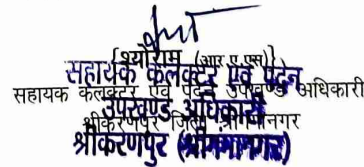 {श्योराम (आर ए.एस)}
सहायक कलेक्टर एवं पदेन
सहायक कलेक्टर एवं पदेन उपखण्ड अधिकारी
उपखण्ड अधिकारी
श्रीकरणपुर जिला श्रीगंगानगर
श्रीकरणपुर (श्रीगंगानगर)